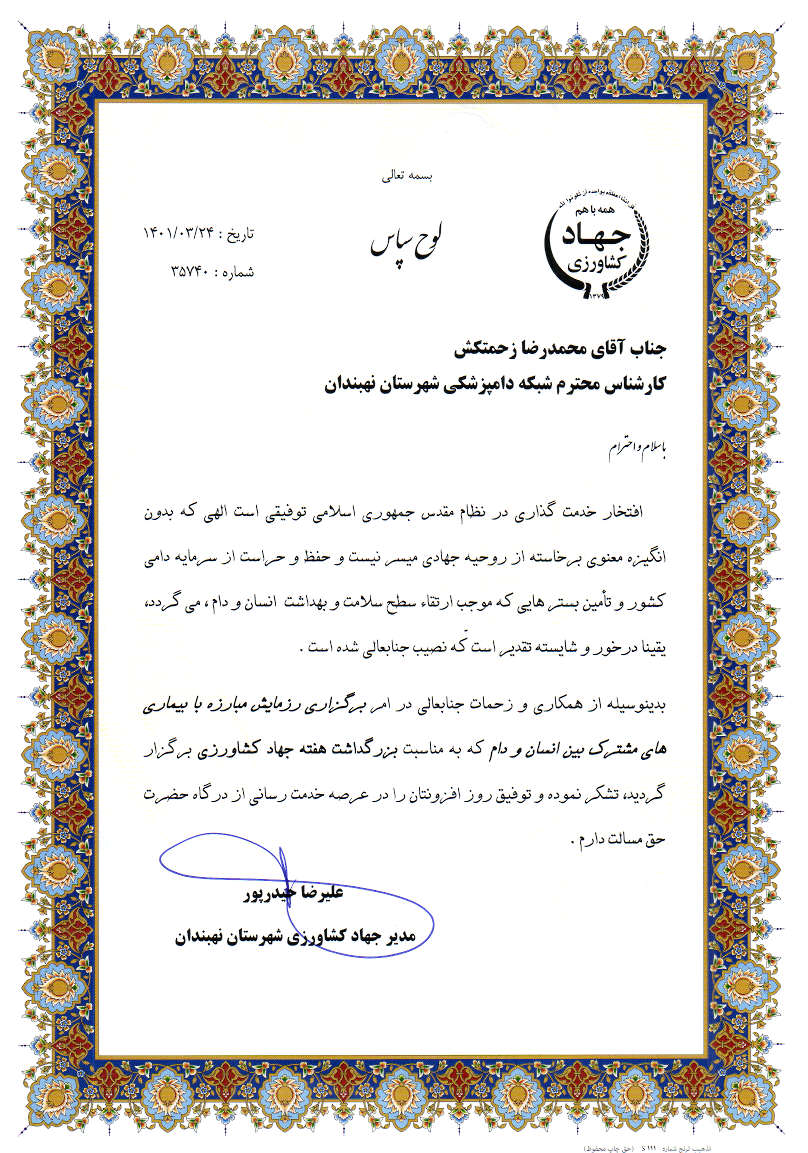 بسمه تعالی
همه با هم
جهاد
کشاورزی
۱۳۷۹
لوح سپاس
تاریخ : ۱۴۰۱/۰۳/۲۴
شماره : ۳۵۷۴۰
جناب آقای محمدرضا زحمتکش
کارشناس محترم شبکه دامپزشکی شهرستان نهبندان
باسلام و احترام
افتخار خدمت گذاری در نظام مقدس جمهوری اسلامی توفیقی است الهی که بدون
انگیزه معنوی برخاسته از روحیه جهادی میسر نیست و حفظ و حراست از سرمایه دامی
کشور و تأمین بستر هایی که موجب ارتقاء سطح سلامت و بهداشت انسان و دام ، می گردد،
یقینا درخور و شایسته تقدیر است که نصیب جنابعالی شده است .
بدینوسیله از همکاری و زحمات جنابعالی در امر برگزاری رزمایش مبارزه با بیماری
های مشترک بین انسان و دام که به مناسبت بزرگداشت هفته جهاد کشاورزی برگزار
گردید، تشکر نموده و توفیق روز افزونتان را در عرصه خدمت رسانی از درگاه حضرت
حق مسالت دارم .
علیرضا حیدرپور
مدیر جهاد کشاورزی شهرستان نهبندان
تذهیب ترنج شماره S ۱۱۱ (حق چاپ محفوظ)